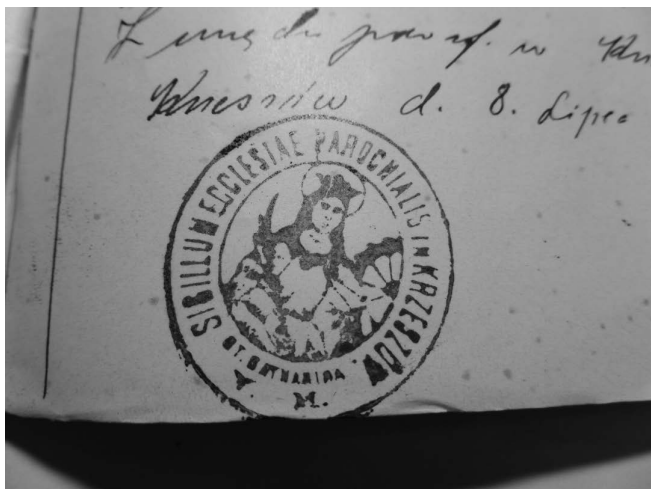 Z urzędu paraf. w
Krzeszów d. 8. Lipca
SIGILLUM ECCLESIAE PAROCHIALIS IN KRZESZOW
ST. CATHARINA
V. M.